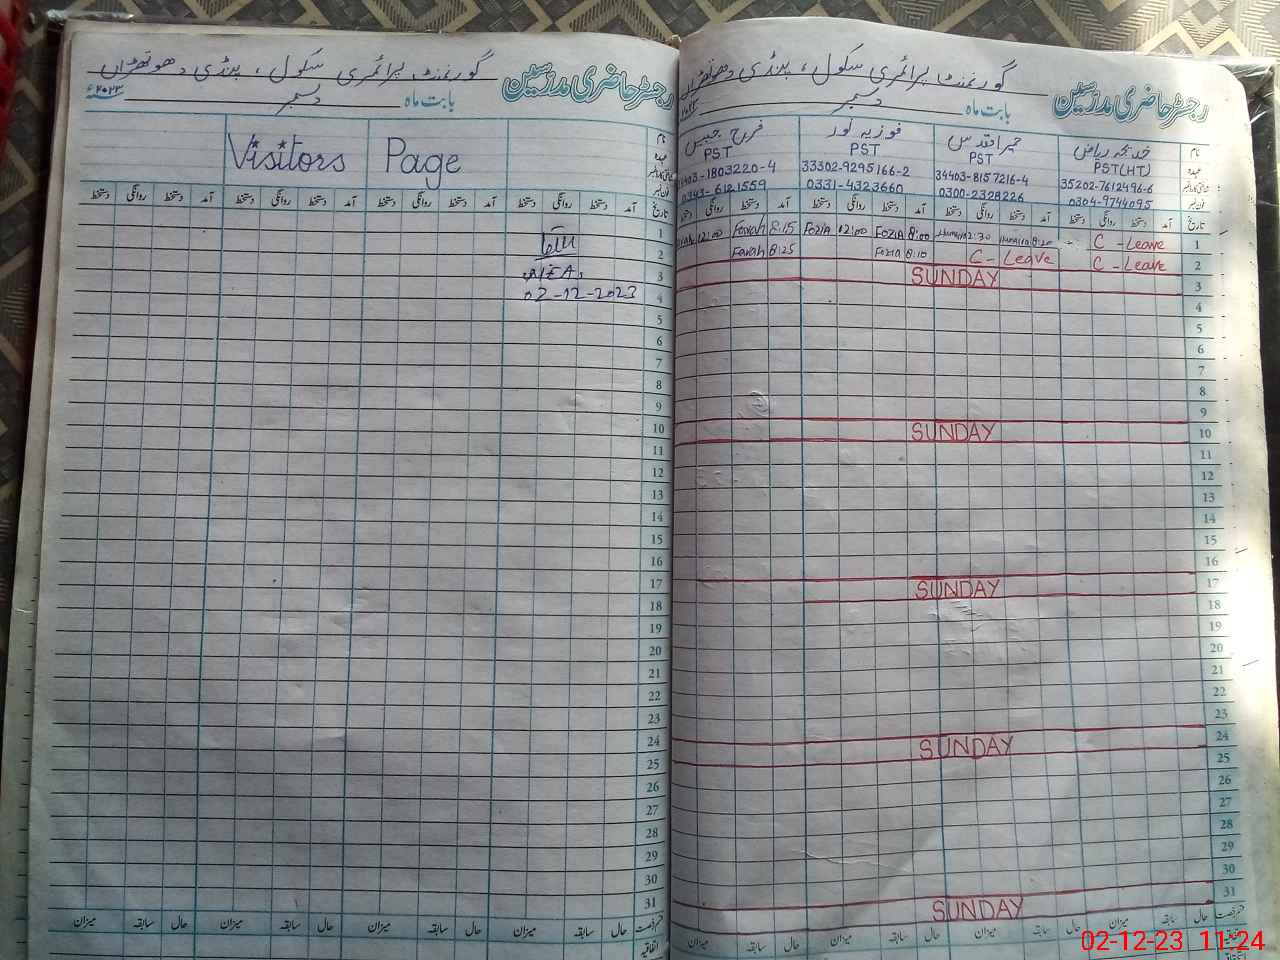 گورنمنٹ پرائمری سکول ، پنڈی دھوتھڑاں
رجسٹر حاضری مدرسین
بابت ماہ دسمبر ۲۰۲۳ء
Visitors Page
نام
عہدہ
تاریخ آمد دستخط روانگی دستخط آمد دستخط روانگی دستخط آمد دستخط روانگی دستخط آمد دستخط روانگی دستخط
1
2
AEA,
3
02-12-2023
4
5
6
7
8
9
10
11
12
13
14
15
16
17
18
19
20
21
22
23
24
25
26
27
28
29
30
31
حال سابقہ میزان حال سابقہ میزان حال سابقہ میزان حال سابقہ میزان
اتفاقیہ
گورنمنٹ پرائمری سکول ، پنڈی دھوتھڑاں
رجسٹر حاضری مدرسین
بابت ماہ دسمبر
نام خدیجہ ریاض حمیرا قدس فوزیہ نور فرح جبیں
عہدہ PST(HT) PST PST PST
35202-7612496-6 34403-8157216-4 33302-9295166-2 34403-1803220-4
0304-9744095 0300-2328226 0331-4323660 0343-6121559
تاریخ آمد دستخط روانگی دستخط آمد دستخط روانگی دستخط آمد دستخط روانگی دستخط آمد دستخط روانگی
12:00 Farah 8:15 Fozia 12:00 Fozia 8:00 Humaira 2:30 Humaira C - Leave 1
Farah 8:25 Fozia 8:10 C - Leave C - Leave 2
SUNDAY 3
4
5
6
7
8
9
SUNDAY 10
11
12
13
14
15
16
SUNDAY 17
18
19
20
21
22
23
SUNDAY 24
25
26
27
28
29
30
SUNDAY 31
حال سابقہ میزان حال سابقہ میزان حال سابقہ میزان حال سابقہ میزان
02-12-23 11:24